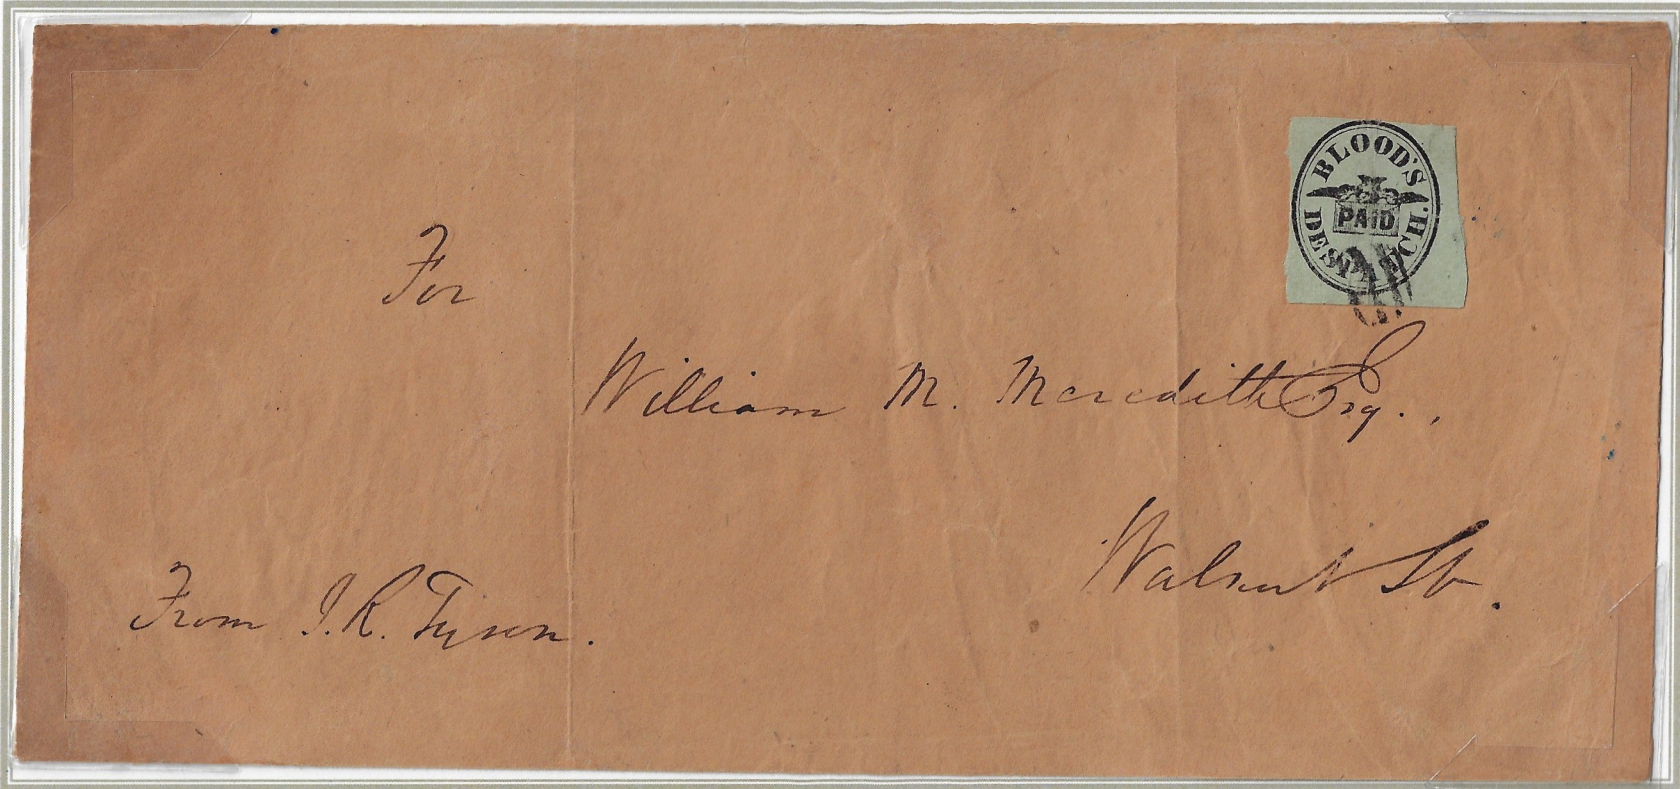 BLOOD'S
PAID
DESPATCH.
For
William M. Meredith Esq.,
Walnut St.
From J. R. Tyson.